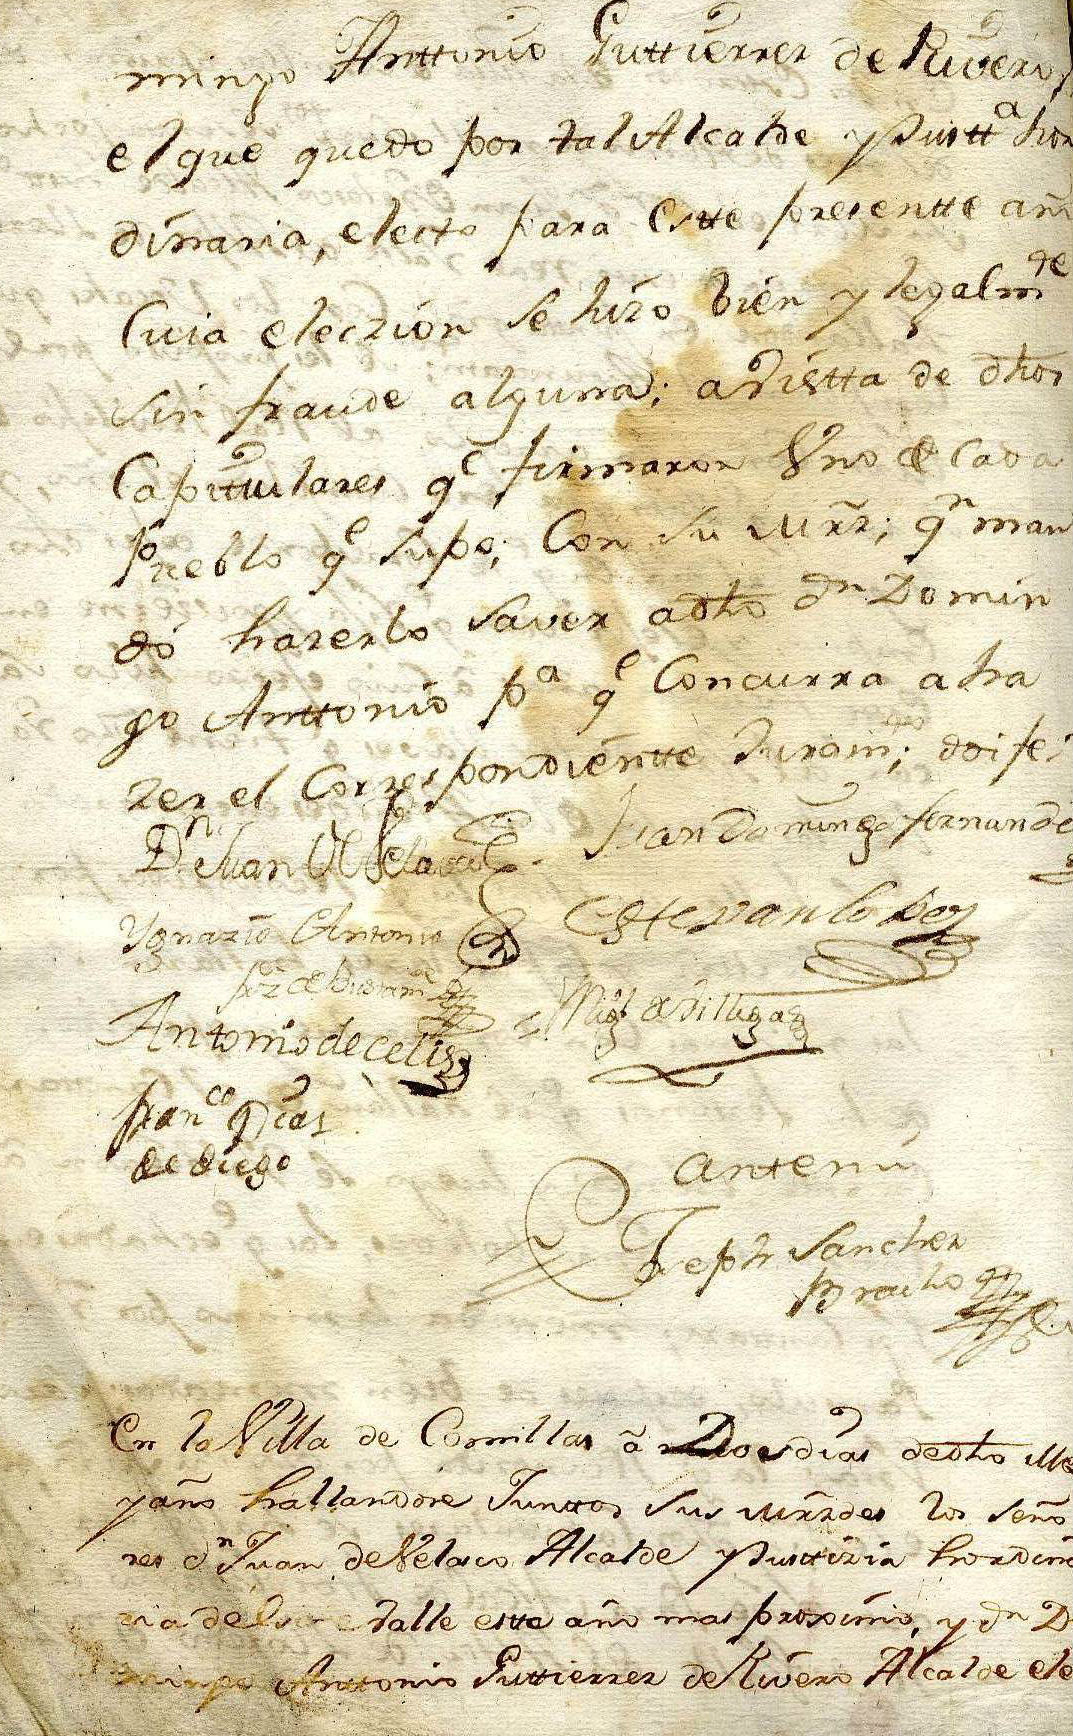 mingo Anttonio Guttierrez de Rivero,
el que quedo por tal Alcalde y Justt.ª hor
dinaria, electo para Estte presentte añ
Cuia eleczion se hizo bien y legalm.te
sin fraude alguna; a Vistta de dhos
Capittulares q.e firmaron Vno de Cada
Pueblo q.e supo; Con su mrz; q.n man
dó hazerlo saver a dho d.n Domin
go Anttonio p.a q.e Concurra a ha
zer el Correspondientte Juram.to; doi fe;
D.n Juan de Velasco
Juan Domingo fernande
Ygnazio Antonio
Estevan
Antonio de Celis
Mig.l de Villegas
fran.co Dias
de diego
Antemi
Joseph Sanchez
Bracho
En la Villa de Comillas â Dos dias de dho Me
y año hallandose Junttos sus mrzdes los seño
res d.n Juan de Velasco Alcalde y Justtizia hordina
ria de valle estte año mas proximo, y d.n D
mingo Anttonio Guttierrez de Rivero Alcalde ele